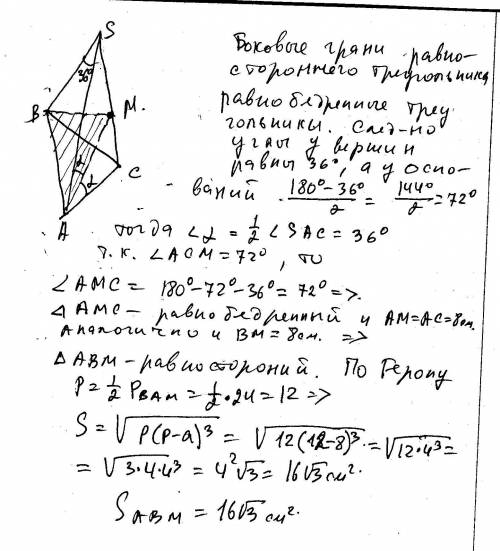 S
36°
B
M.
C
A
α
α
Боковые грани равно-
стороннего треугольника
равнобедренные треу
гольники. След-но
углы у вершин
равны 36°, а у осно-
ваний (180°-36°)/2 = 144°/2 = 72°
тогда ∠α = 1/2 ∠SAC = 36°
т.к. ∠ACM = 72°, то
∠AMC = 180°-72°-36° = 72° =>.
△AMC - равнобедренный и AM=AC=8см.
Аналогично и BM = 8см. =>
△ABM - равностороний. По Герону
P = 1/2 P_BAM = 1/2 · 24 = 12 =>
S = √(P(P-a)³) = √(12(12-8)³) = √(12·4³) =
= √(3·4·4³) = 4²√3 = 16√3 см².
S_ABM = 16√3 см².